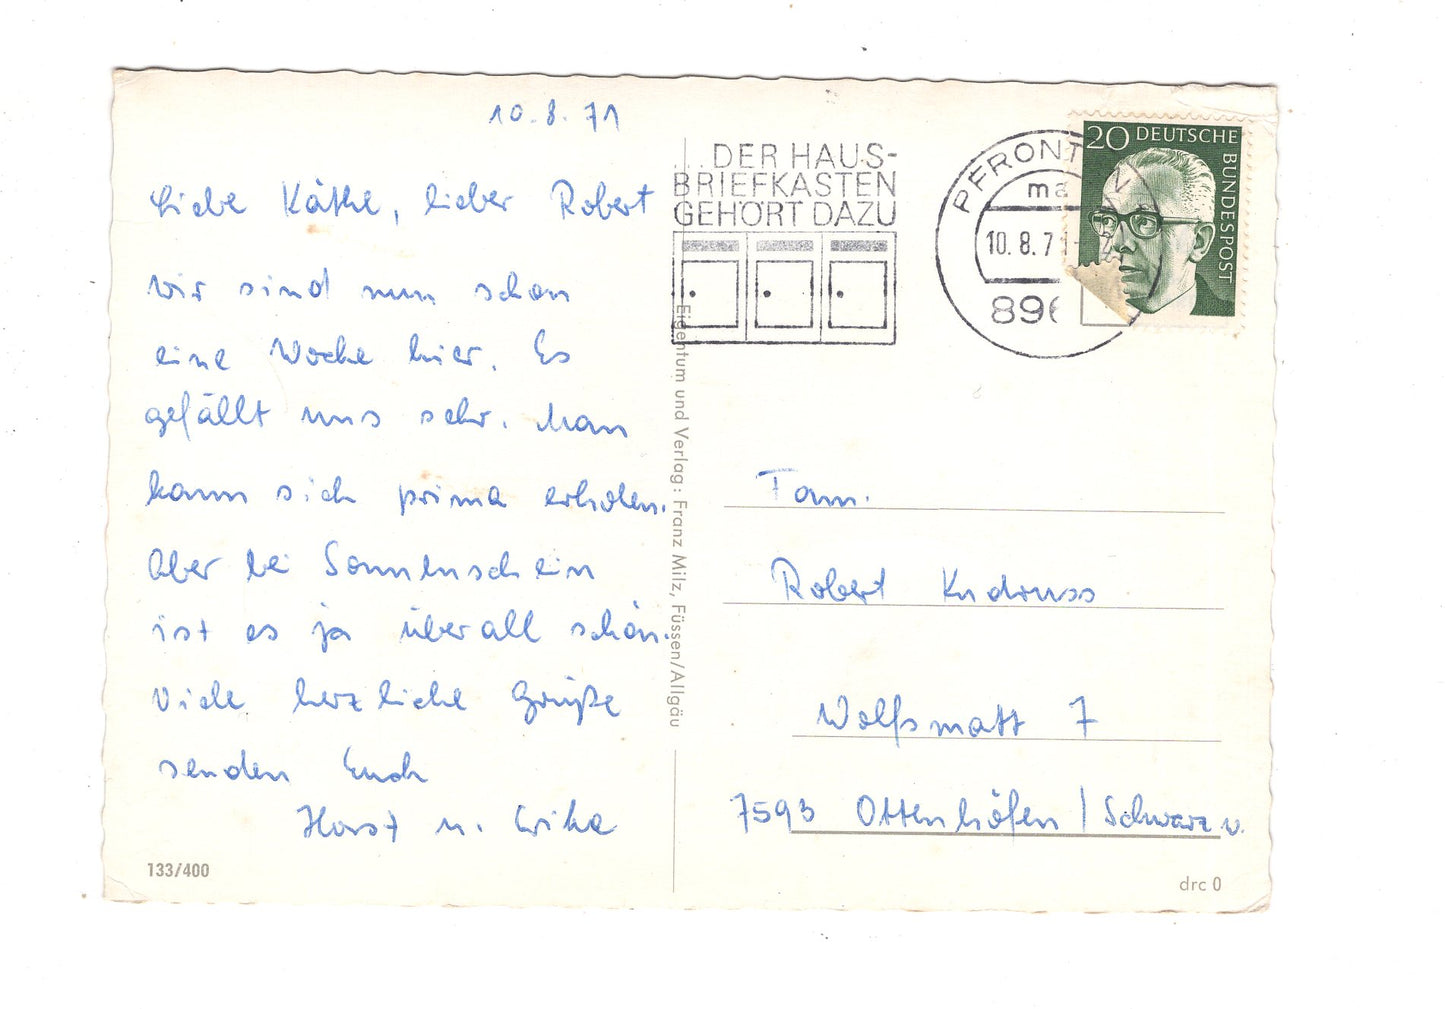 10.8.71
Liebe Käthe, lieber Robert
wir sind nun schon
eine Woche hier. Es
gefällt uns sehr. Man
kann sich prima erholen.
Aber bei Sonnenschein
ist es ja überall schön.
Viele herzliche Grüße
senden Euch
Horst u. Erika
133/400
Eigentum und Verlag: Franz Milz, Füssen/Allgäu
...DER HAUS-
BRIEFKASTEN
GEHÖRT DAZU
PFRONTEN
10.8.71
896
20 DEUTSCHE
BUNDESPOST
Fam.
Robert
Wolfsmatt 7
7593 Ottenhöfen / Schwarzw.
drc 0